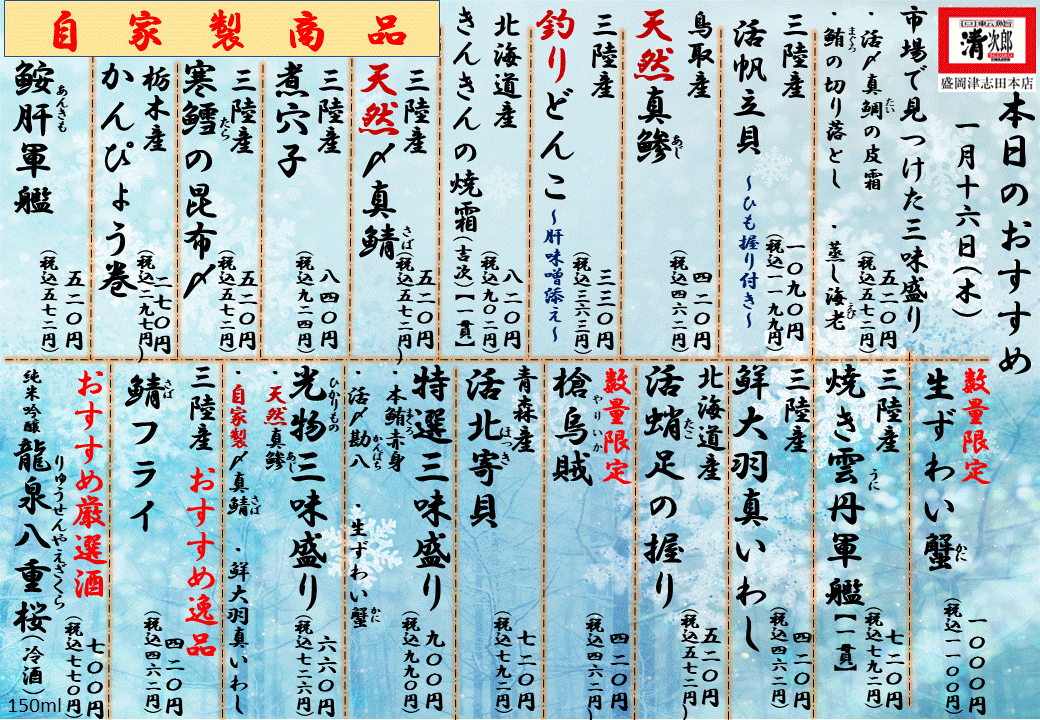 回転鮨
清次郎
盛岡津志田本店
本日のおすすめ
一月十六日(木)
市場で見つけた三味盛り
・活〆真鯛の皮霜
たい
・鮪の切り落とし
まぐろ
・蒸し海老
えび
五二〇円
(税込五七二円)
三陸産
活帆立貝
~ひも握り付き~
一〇九〇円
(税込一一九九円)
鳥取産
天然真鯵
あじ
四二〇円
(税込四六二円)
三陸産
釣りどんこ
~肝味噌添え~
三三〇円
(税込三六三円)
北海道産
きんきんの焼霜(吉次)【一貫】
八二〇円
(税込九〇二円)
自家製商品
三陸産
天然〆真鯖
さば
五二〇円
(税込五七二円)
三陸産
煮穴子
八四〇円
(税込九二四円)
三陸産
寒鱈の昆布〆
たら
五二〇円
(税込五七二円)
栃木産
かんぴょう巻
二七〇円
(税込二九七円)
鮟肝軍艦
あんきも
五二〇円
(税込五七二円)
数量限定
生ずわい蟹
かに
一〇〇〇円
(税込一一〇〇円)
三陸産
焼き雲丹軍艦【一貫】
うに
七二〇円
(税込七九二円)
三陸産
鮮大羽真いわし
四二〇円
(税込四六二円)
北海道産
活蛸足の握り
たこ
五二〇円
(税込五七二円)
数量限定
槍烏賊
やりいか
四二〇円
(税込四六二円)
青森産
活北寄貝
ほっき
七二〇円
(税込七九二円)
特選三味盛り
・本鮪赤身
まぐろ
・活〆勘八
かんぱち
・生ずわい蟹
かに
九〇〇円
(税込九九〇円)
光物三味盛り
ひかりもの
・天然真鯵
あじ
・自家製〆真鯖
さば
・鮮大羽真いわし
六六〇円
(税込七二六円)
おすすめ逸品
三陸産
鯖フライ
さば
四二〇円
(税込四六二円)
おすすめ厳選酒
純米吟醸
龍泉八重桜(冷酒)
りゅうせんやえざくら
七〇〇円
(税込七七〇円)
150ml